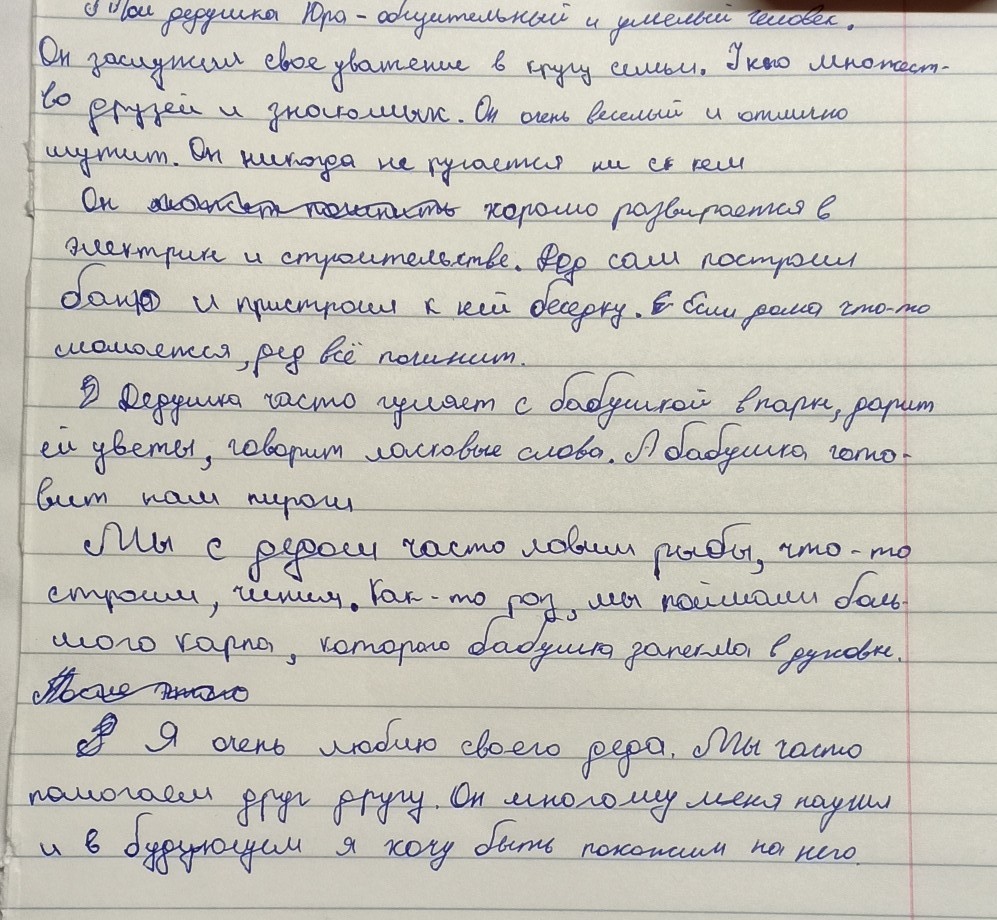 Мой дедушка Юра - общительный и умелый человек.
Он заслужил свое уважение в кругу семьи. У него множест-
во друзей и знакомых. Он очень веселый и отлично
шутит. Он никогда не ругается ни с кем
Он может починить хорошо разбирается в
электрике и строительстве. Дед сам построил
баню и пристроил к ней беседку. Если дома что-то
сломается, дед всё починит.
Дедушка часто гуляет с бабушкой в парке, дарит
ей цветы, говорит ласковые слова. А бабушка гото-
вит нам пироги
Мы с дедом часто ловим рыбы, что-то
строим, чиним. Как-то раз, мы поймали боль-
шого карпа, которого бабушка запекла в духовке.
После этого
Я очень люблю своего деда. Мы часто
помогаем друг другу. Он многому меня научил
и в будующем я хочу быть похожим на него.